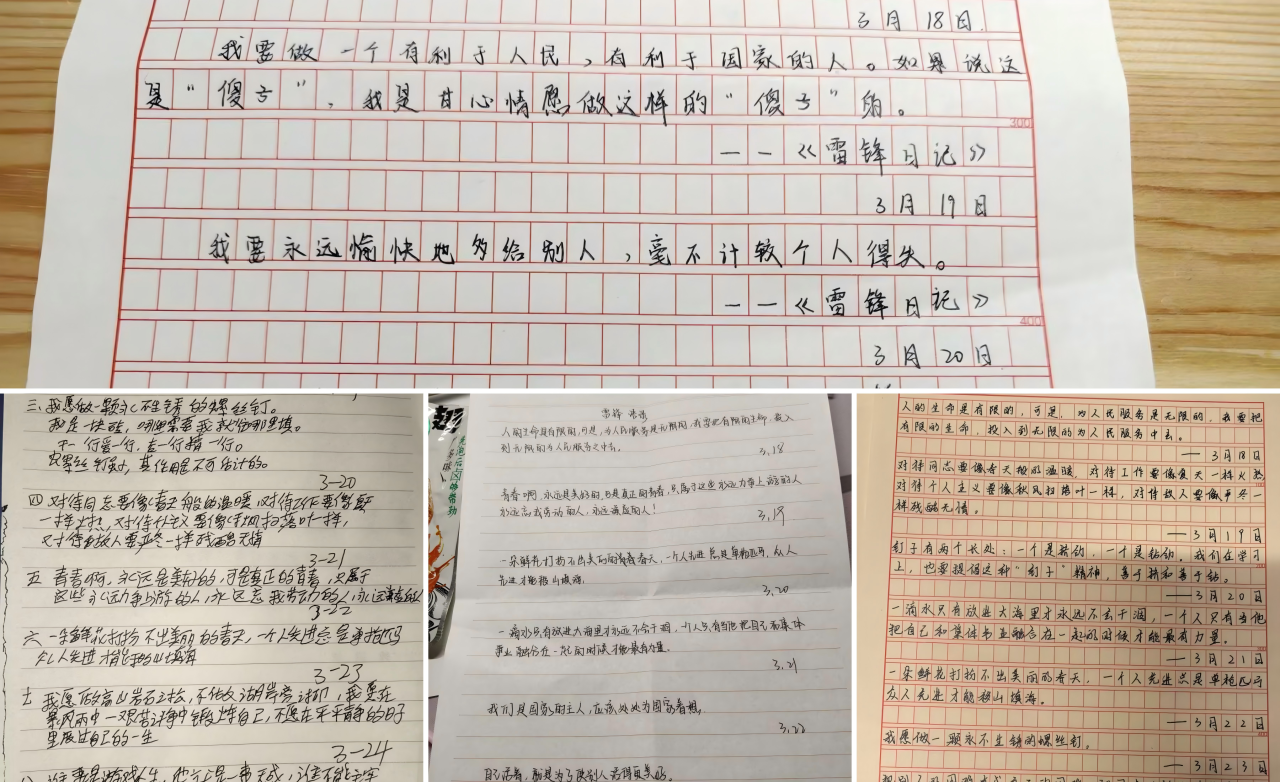 3月18日.
我要做一个有利于人民,有利于国家的人。如果说这
是“傻子”,我是甘心情愿做这样的“傻子”的。
300
——《雷锋日记》
3月19日
我要永远愉快地多给别人,毫不计较个人得失。
——《雷锋日记》
400
3月20日
三、我愿做一颗永不生锈的螺丝钉。
我是一块砖,哪里需要我我就往哪里填。
干一行爱一行,
其作用是不可估计的。
3-20
四 对待同志要像春天般的温暖,对待工作要像夏天
一样火热,对待个人主义要像秋风扫落叶一样,
对待敌人要严冬一样残酷无情
3-21
五 青春啊,永远是美好的,可是真正的青春,只属于
这些永远力争上游的人,永远忘我劳动的人,永远谦虚的人
3-22
六 一朵鲜花打扮不出美丽的春天,一个人先进总是单枪匹马
众人先进才能移山填海
3-23
七 我愿做高山岩石之松,不做湖岸河旁之柳,我愿在
暴风雨中 艰苦斗争中锻炼自己,不愿在平平静静的日子
里度过自己的一生
3-24
雷锋
人的生命是有限的,可是,为人民服务是无限的,我要把有限的生命,投入
到无限的为人民服务之中去。
3.18
青春啊,永远是美好的,可是真正的青春,只属于这些永远力争上游的人
永远忘我劳动的人,永远谦虚的人!
3.19
一朵鲜花打扮不出美丽的春天,一个人先进总是单枪匹马,众人
先进才能移山填海。
3.20
一滴水只有放进大海里才永远不会干涸,一个人只有当他把自己和集体
事业融合在一起的时候才能最有力量。
3.21
我们是国家的主人,应该处处为国家着想。
3.22
自己活着,就是为了使别人活得更美好。
人的生命是有限的,可是,为人民服务是无限的,我要把
有限的生命,投入到无限的为人民服务中去。
—3月18日
对待同志要像春天般的温暖,对待工作要像夏天一样火热
对待个人主义要像秋风扫落叶一样,对待敌人要像严冬一
样残酷无情。
—3月19日
钉子有两个长处:一个是挤劲,一个是钻劲,我们在学习
上,也要提倡这种“钉子”精神,善于挤和善于钻。
—3月20日
一滴水只有放进大海里才永远不会干涸,一个人只有当他
把自己和集体事业融合在一起的时候才能最有力量。
—3月21日
一朵鲜花打扮不出美丽的春天,一个人先进总是单枪匹马
众人先进才能移山填海。
—3月22日
我愿做一颗永不生锈的螺丝钉。
—3月23日